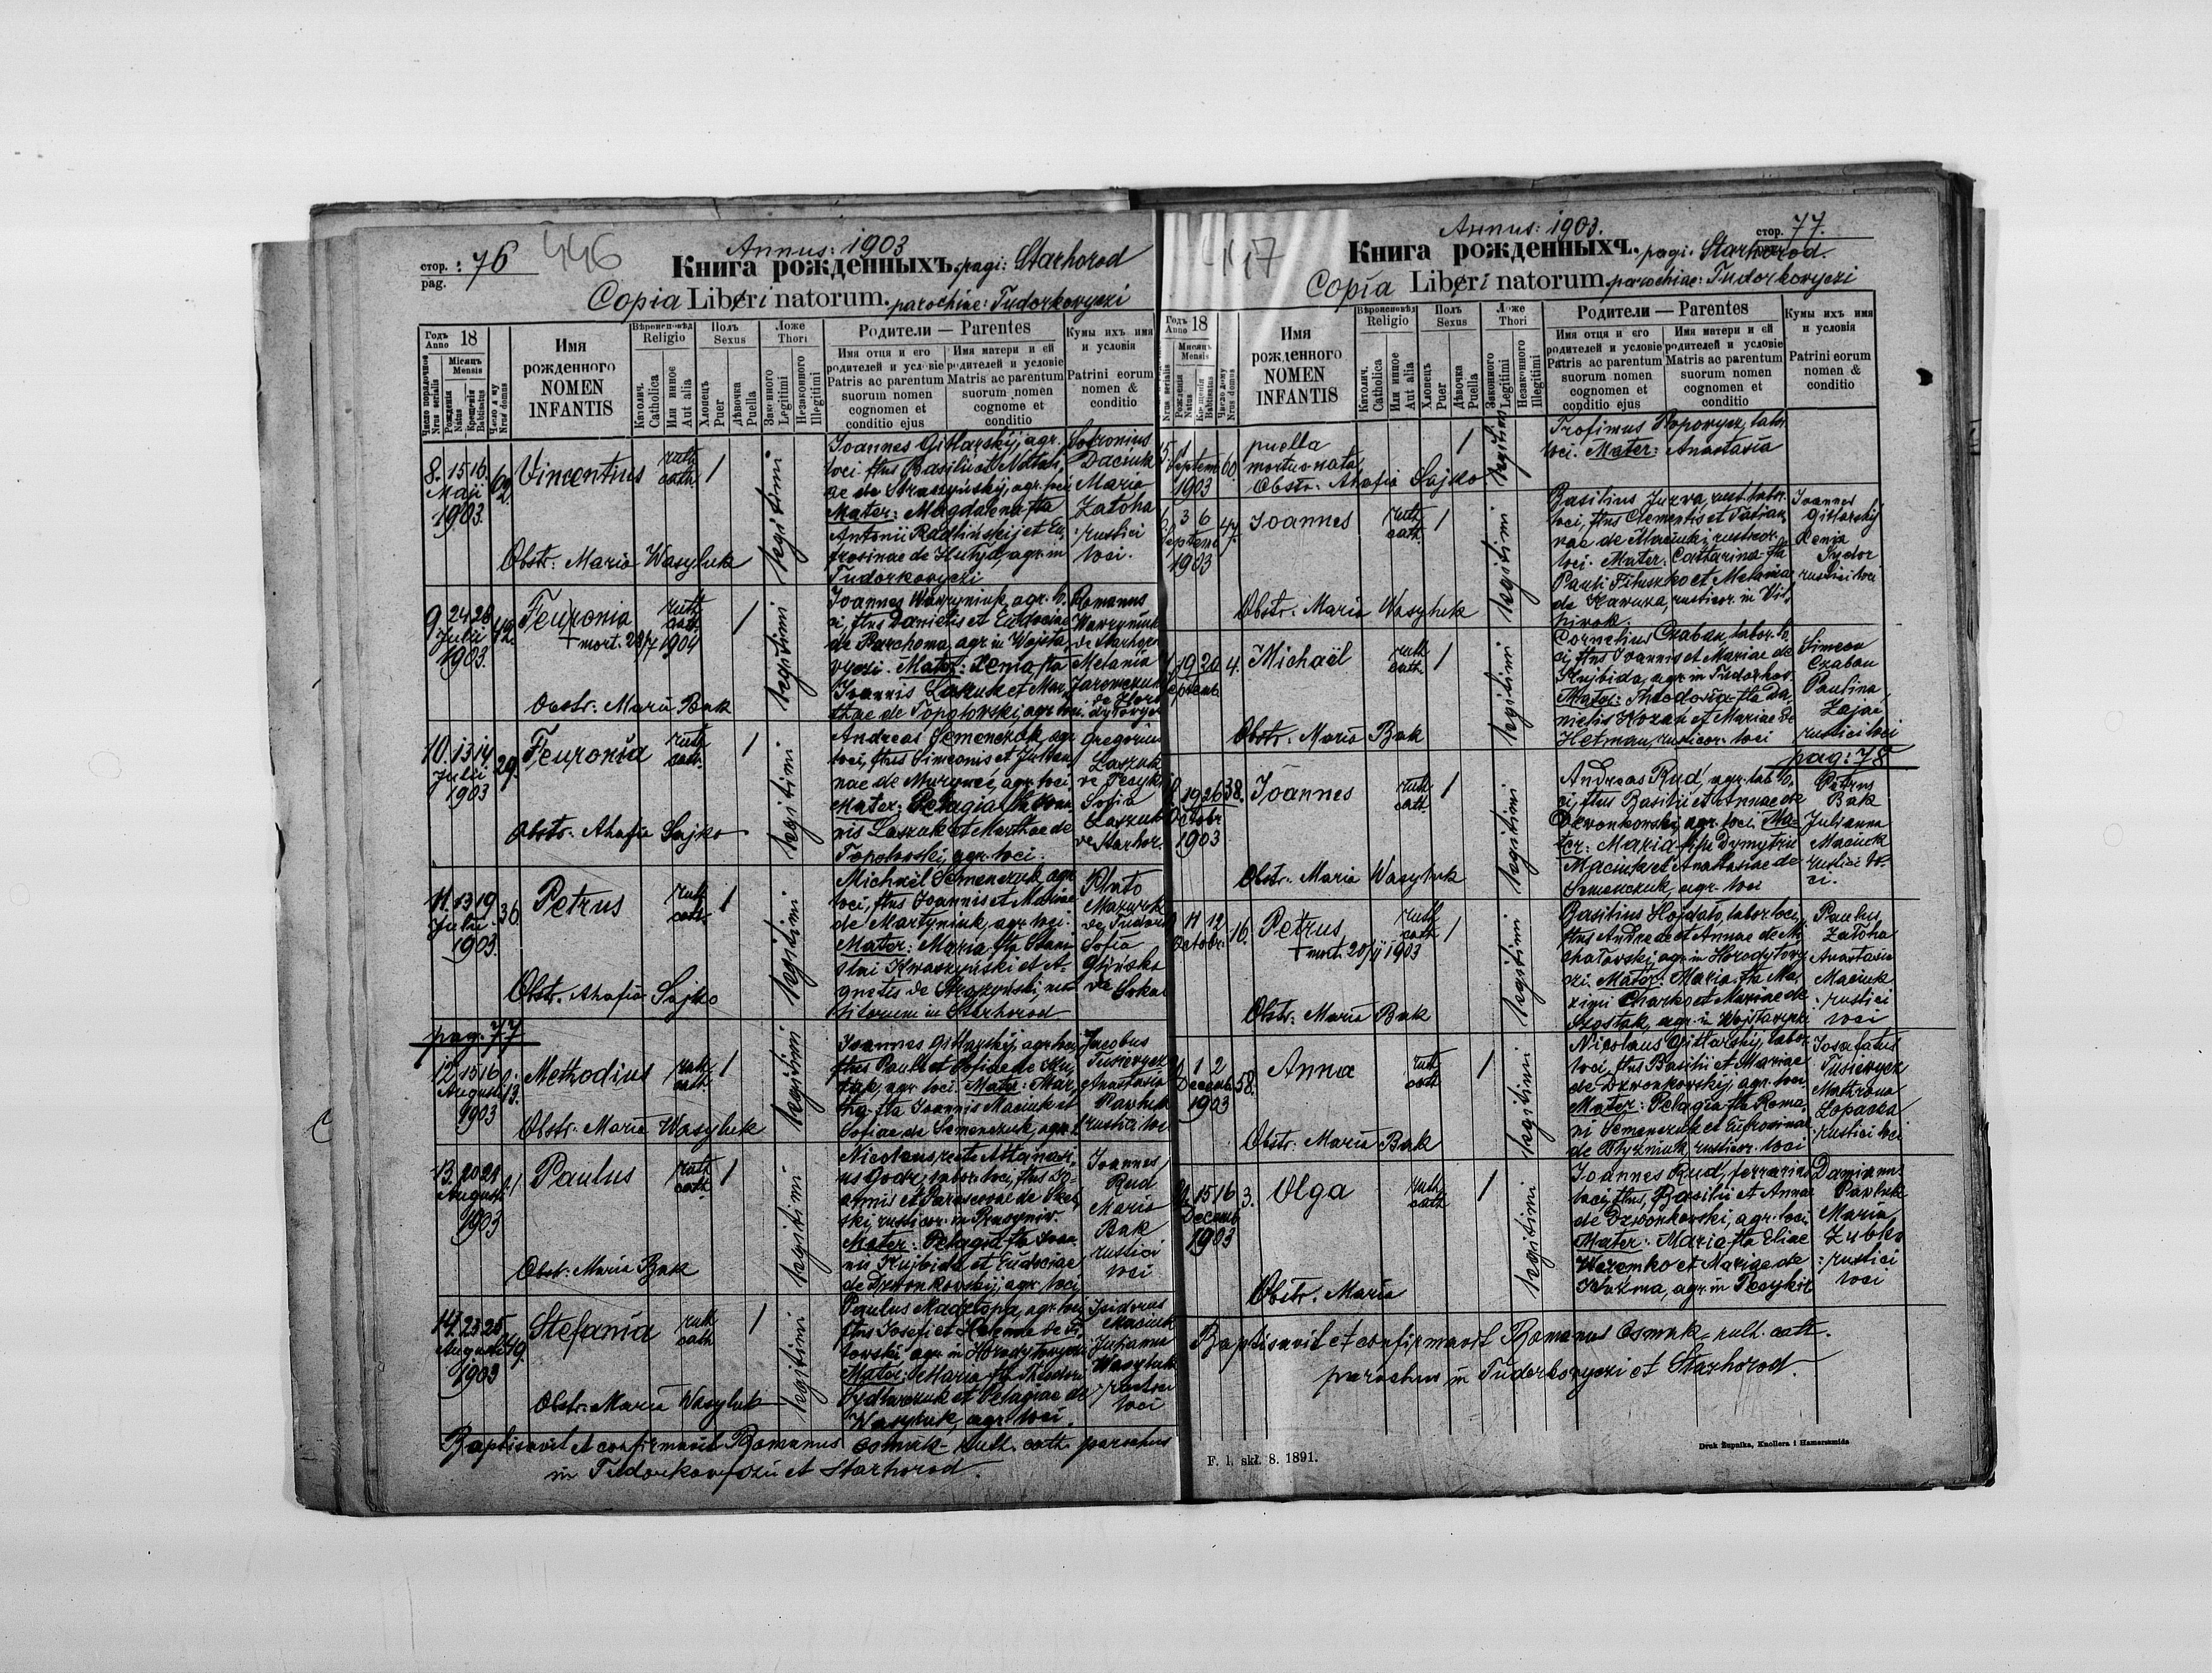 стор. : 76
pag.
446
Annus: 1903
Книга рожденныхъ. pagi: Starhorod
Copia Libri natorum. parochiae: Tudorkovyczi
Годъ Anno 18
Число порядочное Nrus serialis
Мѣсяцъ Mensis
Рожденія Natus
Крещенія Babtisatus
Число дому Nrus domus
Имя
рожденного
NOMEN
INFANTIS
Вѣроисповѣд
Religio
Католич. Catholica
Или инное Aut alia
Полъ
Sexus
Хлопецъ Puer
Дѣвочка Puella
Ложе
Thori
Законного Legitimi
Незаконного Illegitimi
Родители — Parentes
Имя отця и его
родителей и условіе
Patris ac parentum
suorum nomen
cognomen et
conditio ejus
Имя матери и ей
родителей и условіе
Matris ac parentum
suorum nomen
cognome et
conditio
Кумы ихъ имя
и условія
Patrini eorum
nomen &
conditio
8. 15 16
Maji
1903.
Vincentius
ruth.
cath.
1
legitimi
Joannes Gitlarskij, agr.
loci, ftus Basilii et Natali,
ae de Straszyńskij, agr. loci
Mater: Magdalena fta
Antonii Radlińskij et Eu,
frosinae de Hutyra, agr. in
Tudorkovyczi
Sofronius
Daciuk
Maria
Zatoha
rustici
loci.
Obstr: Maria Wasyluk
9. 24 28
Julii
1903.
42
Feuronia
+ mort. 28/7 1904
ruth.
cath.
1
legitimi
Joannes Wawryniuk, agr. lo,
ci, ftus Danielis et Eudociae
de Parchoma, agr. in Wojsła,
vyczi. Mater: Xenia, fta
Joannis Laszuk et Mar,
thae de Topolowski, agr. loci.
Romanus
Wawryniuk
de Starhor
Melania
Jaremczuk
de Horo
dylovyczi
Obstr: Maria Bak
10. 13 14
Julii
1903
29.
Feuronia
ruth.
cath.
1
legitimi
Andreas Semenczuk, agr.
loci, ftus Simeonis et Julian,
nae de Murawei, agr. loci
Mater: Pelagia, fta Joan,
nis Laszuk et Marthae de
Topolowski, agr. loci.
Gregorius
Laszuk
de Pecyhi
Sofia
Laszuk
de Starhor.
Obstr: Ahafia Sajko
11. 13 19
Julii
1903.
36.
Petrus
ruth.
cath.
1
legitimi
Michaël Semenczuk, agr.
loci, ftus Joannis et Mariae
de Martyniuk, agr. loci.
Mater: Maria, fta Stani
slai Kwaszyński et A,
gnetis de Straszyński,
in Starhorod
Pluto
Mazurek
de Tudork
Sofia
Glińska
de Sokal
Obstr: Ahafia Sajko
pag. 77
12. 15 16
Augusti
1903
13.
Methodius
ruth.
cath.
1
legitimi
Joannes Gitlarskij, agr. loci
ftus Pauli et Sofiae de Ku,
, agr. loci. Mater: Mar,
tha fta Joannis Maciuk et
Sofiae de Semenczuk, agr. l.
Jacobus
Tusievycz
Anastasia
Pavluk
rustici loci
Obstr: Maria Wasyluk
13. 20 21
Augusti
1903
Paulus
ruth.
cath.
1
legitimi
Nicolaus recte Athanasi,
us , labor. loci, ftus Jo,
annis et Parascevae de
ski, rusticor. in
Mater: Pelagia fta Joan,
nis Kujbida et Eudociae
de Dzwonkowskij, agr. loci
Joannes
Rud
Maria
Bak
rustici
loci
Obstr: Maria Bak
14. 23 25
Augusti
1903
49.
Stefania
ruth.
cath.
1
legitimi
Paulus Madzlopa, agr. loci,
ftus Josefi et Helenae de
 agr. in Horodylovyczi
Mater: Maria fta Theodori
 et Pelagiae de
Wasyluk, agr. loci.
Isidorus
Maciuk
Julianna
Wasyluk
rustici
loci
Obstr: Maria Wasyluk
Baptisavit et confirmavit Romanus Osmak - ruth. cath. parochus
in Tudorkovyczi et Starhorod.
стор. 77.
417
Annus: 1903.
Книга рожденныхъ. pagi: Starhorod.
Copia Libri natorum. parochiae: Tudorkovyczi
Годъ Anno 18
Nrus serialis
Мѣсяцъ Mensis
Рожденія Natus
Крещенія Babtisatus
Число дому Nrus domus
Имя
рожденного
NOMEN
INFANTIS
Вѣроисповѣд
Religio
Католич. Catholica
Или инное Aut alia
Полъ
Sexus
Хлопецъ Puer
Дѣвочка Puella
Ложе
Thori
Законного Legitimi
Незаконного Illegitimi
Родители — Parentes
Имя отця и его
родителей и условіе
Patris ac parentum
suorum nomen
cognomen et
conditio ejus
Имя матери и ей
родителей и условіе
Matris ac parentum
suorum nomen
cognomen et
conditio
Кумы ихъ имя
и условія
Patrini eorum
nomen &
conditio
1
Septem
1903
60.
puella
mortuo nata
1
legitimi
Trofimus Popowycz, labr.
loci. Mater: Anastasia
Obstr: Ahafia Sajko
3 6
Septem
1903
47.
Joannes
ruth.
cath.
1
legitimi
Basilius Jurva, rust. labor.
loci, ftus Clementis et Tatian,
nae de Maciuk, rusticor.
loci. Mater: Catharina fta
Pauli Filuszko et Melania
de Kawuza, rusticor. in Vit,
kivok.
Joannes
Gitlarskij
Xenia
Fudor
rustici loci
Obstr: Maria Wasyluk
19 20
Septemb.
4.
Michaël
ruth.
cath.
1
legitimi
Cornelius Czaban, labor. lo,
ci, ftus Joannis et Mariae de
Kujbida, agr. in Tudorkov.
Mater: Theodosia fta Da,
nielis Kozak et Mariae de
Hetman, rusticor. loci
Simeon
Czaban
Paulina
Zajac
rustici loci
Obstr: Maria Bak
pag: 78
19 26
Octobr
1903
38.
Joannes
ruth.
cath.
1
legitimi
Andreas Rud, agr. lab. lo,
ci, ftus Basilii et Annae de
Dzwonkowskij, agr. loci. Ma-
ter: Maria fta Dymytrii
Maciuk et Anastasiae de
Semenczuk, agr. loci
Petrus
Bak
Julianna
Maciuk
rustici lo,
ci.
Obstr: Maria Wasyluk
11 12
Octobr.
16.
Petrus
+ mort. 20/11 1903
ruth.
cath.
1
legitimi
Basilius Hojdalo, labor. loci,
ftus Andreae et Annae de Mi,
chalowskij, agr. in Horodylovy
czi. Mater: Maria fta Ma,
ximi Charko et Mariae de
Szostak, agr. in Wojslavyczi
Paulus
Zatoha
Anastasia
Maciuk
: rustici
loci
Obstr: Maria Bak
1 2
Decemb.
1903
58.
Anna
ruth.
cath.
1
legitimi
Nicolaus Gitlarskij, labor.
loci, ftus Basilii et Mariae
de Dzwonkovskij, agr. loci
Mater: Pelagia fta Roma,
ni Semenczuk et Eufrosinae
de Blyzniuk, rusticor. loci
Josafatus
Tusievycz
Mathrona
Lopacka
rustici loci
Obstr: Maria Bak
15 16
Decemb.
1903
3.
Olga
ruth.
cath.
1
legitimi
Joannes Rud, ferrarius
loci, ftus, Basilii et Annae
de Dzwonkovski, agr. loci
Mater: Maria fta Eliae
Weremko et Mariae de
Kuźma, agr. in Pecyhi
Damianus
Pavluk
Maria
Zubko
: rustici
loci
Obstr. Maria
Baptisavit et confirmavit Romanus Osmak - ruth. cath.
parochus in Tudorkovyczi et Starhorod.
F. 1. skł. 8. 1891.
Druk Żupnika, Knollera i Hamerszmida